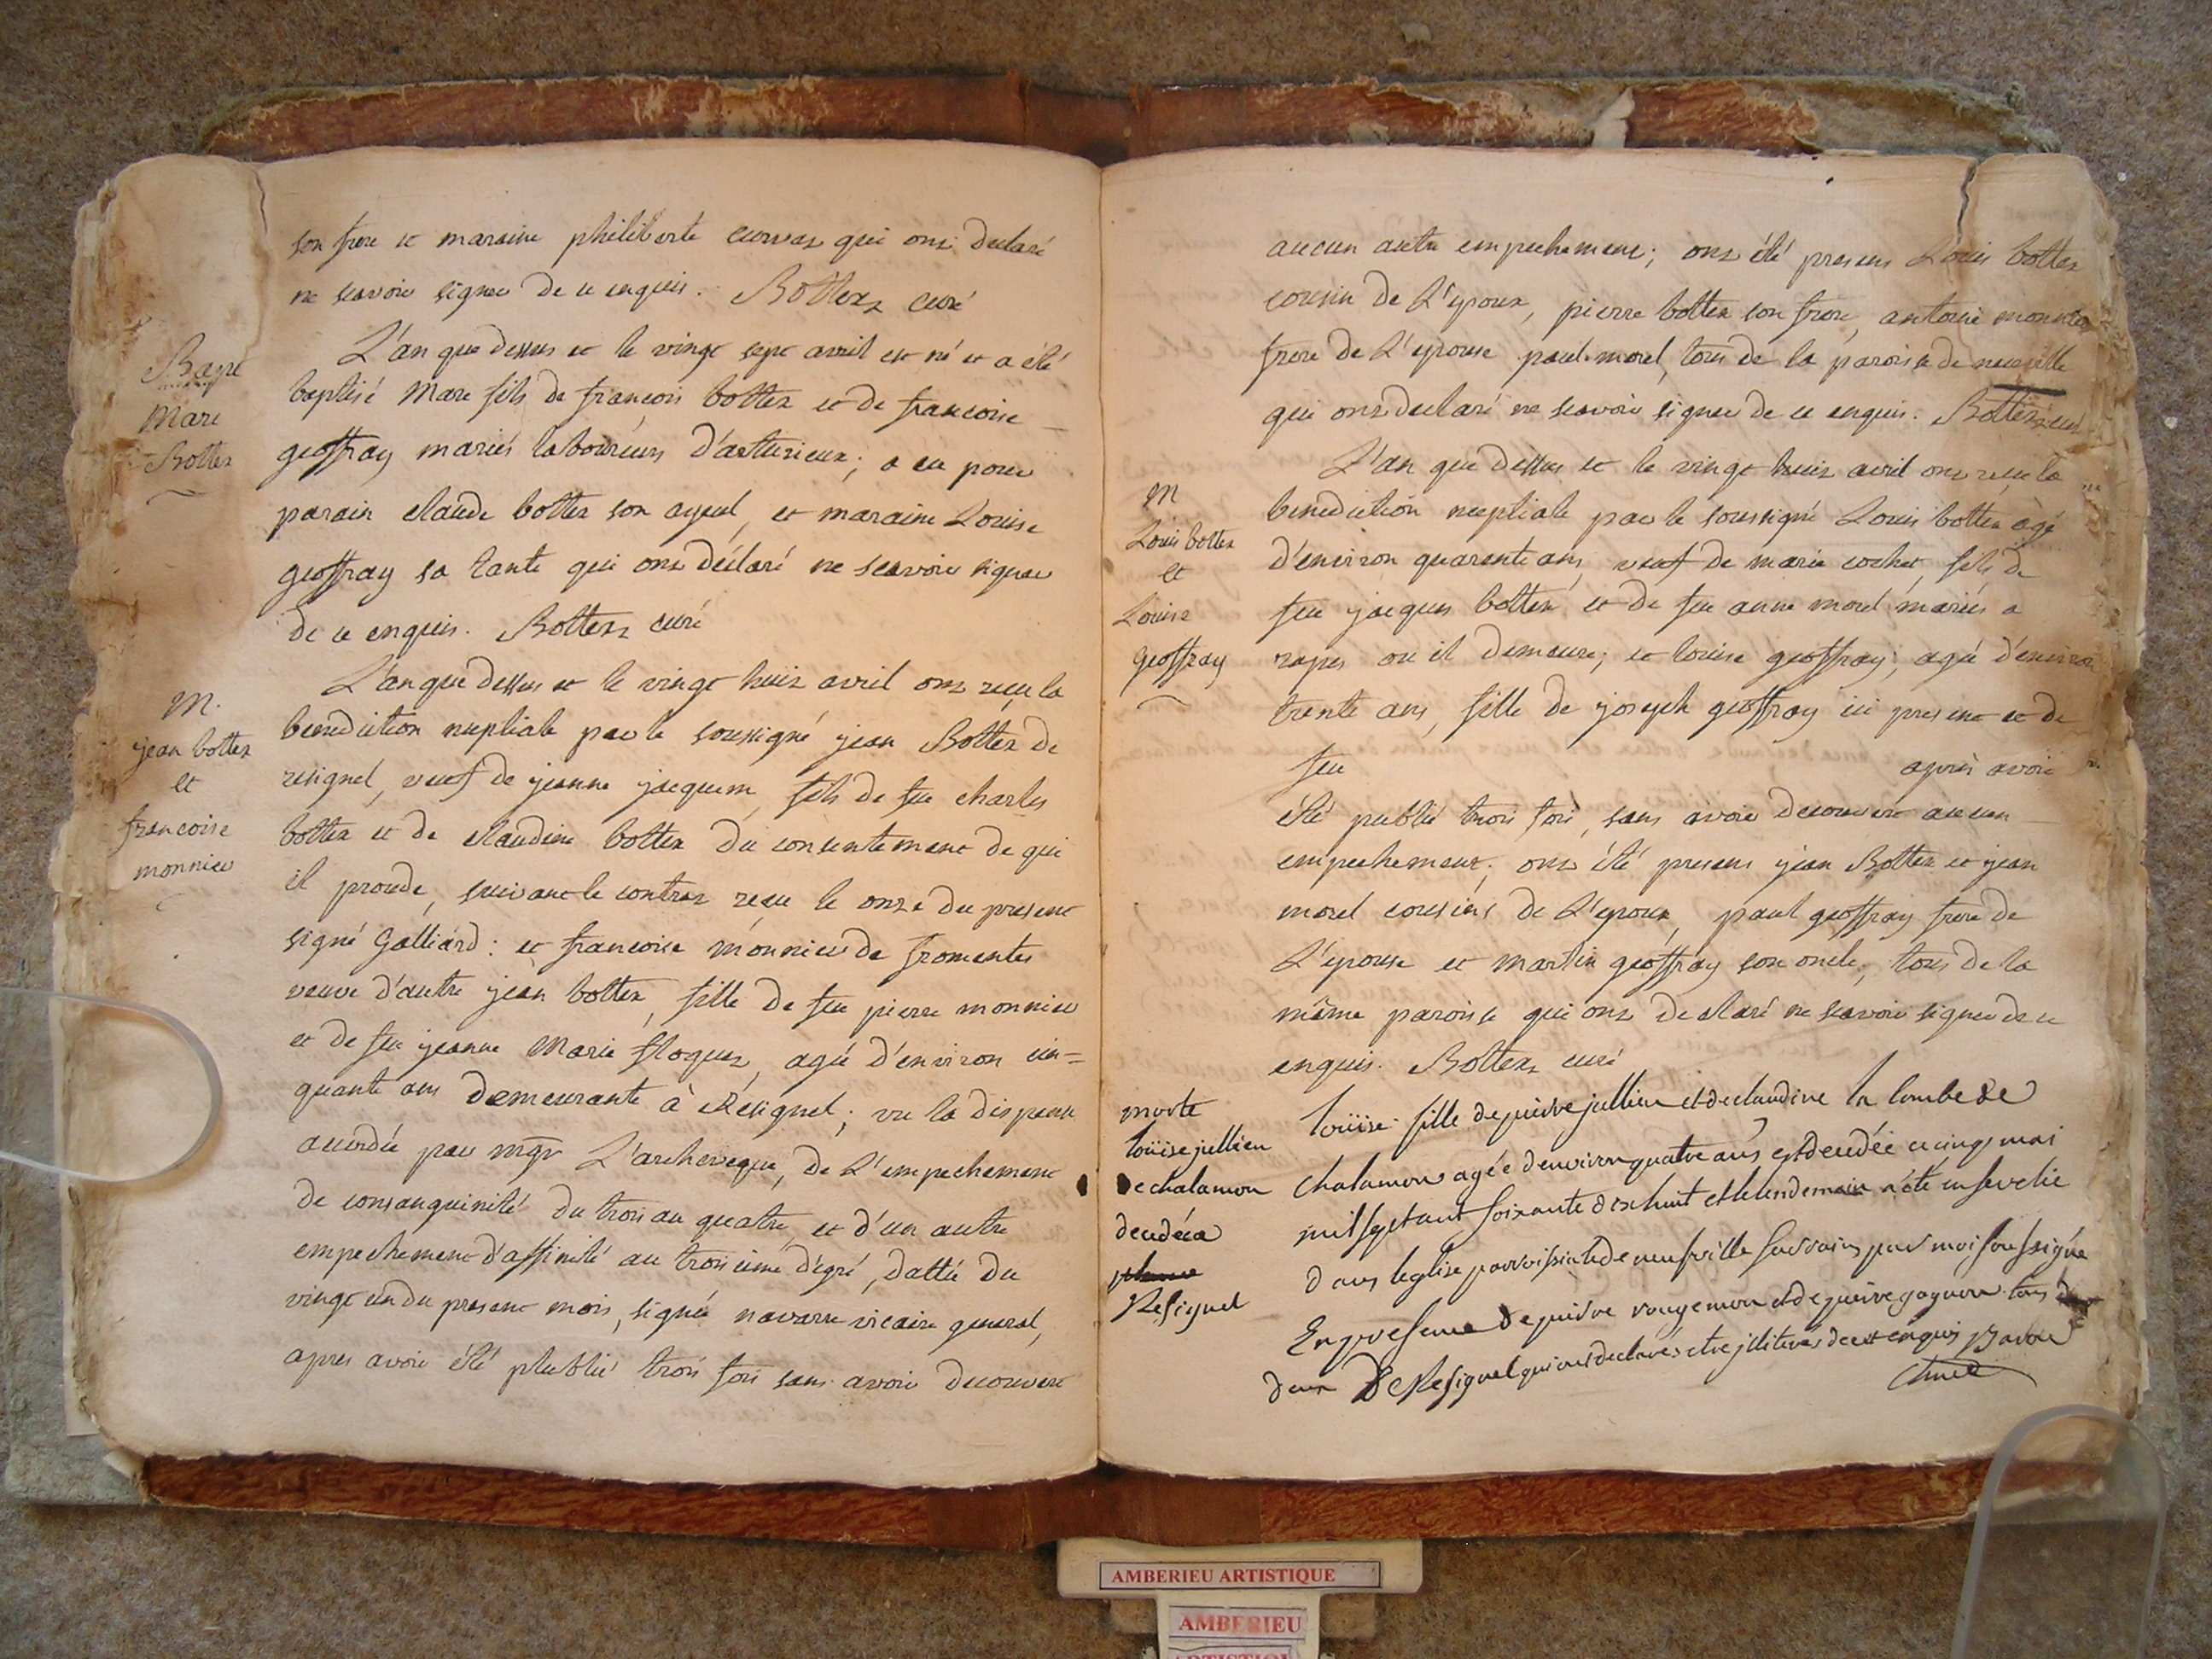 son frere et maraine philiberte curvat qui ont declaré
ne scavoir signer de ce enquis. Bottex curé
Bapt
Marc
Bottex
L'an que dessus et le vingt sept avril est né et a été
baptisé Marc fils de françois bottex et de françoise
geoffray mariés laboureurs d'arturieux; a eu pour
parain claude bottex son ayeul, et maraine Louise
geoffray sa tante qui ont déclaré ne scavoir signer
de ce enquis. Bottex curé
M.
jean bottex
et
françoise
monnier
L'an que dessus et le vingt huit avril ont reçu la
benediction nuptiale par le soussigné jean Bottex de
resignel, veuf de jeanne jacquem, fils de feu charles
bottex et de claudine bottex du consentement de qui
il procede, suivant le contrat reçu le onze du present
signé Galliard: et françoise monnier de fromentes
veuve d'autre jean bottex, fille de feu pierre monnier
et de feu jeanne Marie floquet, agée d'environ cin=
quante ans demeurante à Résignel; vu la dispense
accordée par mgr L'archeveque, de L'empechement
de consanguinité du trois au quatre, et d'un autre
empechement d'affinité au troisieme dégré, dattée du
vingt un du present mois, signée navarre vicaire general,
apres avoir été plublié trois fois sans avoir decouvert
aucun autre empechement; ont été presens Louis bottex
cousin de L'epoux, pierre bottex son frere, antoine monnier
frere de L'epouse paul morel, tous de la paroisse de neuville
qui ont declaré ne scavoir signer de ce enquis. Bottex curé
M
Louis bottex
et
Louise
geoffray
L'an que dessus et le vingt huit avril ont reçu la
benediction nuptiale par le soussigné Louis bottex agé
d'environ quarante ans, veuf de marie cochet, fils de
feu jacques bottex et de feu anne morel mariés a
rapes ou il demeure; et louise geoffray; agée d'environ
trente ans, fille de joseph geoffray ici present et de
feu après avoir
été publié trois fois, sans avoir decouvert aucun
empechement; ont été presens jean Bottex et jean
morel cousins de L'epoux, paul geoffray frere de
L'epouse et martin geoffray son oncle, tous de la
même paroisse qui ont declaré ne scavoir signer de ce
enquis. Bottex curé
morte
loüise jullien
de chalamon
decedéea
Resignel
loüise fille de pierre jullien et de claudine la combe de
chalamon agée denviron quatre ans est decedée ce cinq mai
mil sept cent soixante dixhuit et le lendemain a été ensevelie
dans leglise parroissiale de neufville sur rains par moi soussigné
En presence de pierre rougemon et de pierre gagnon tous
deux De Resignel qui ont declarés etre illiterés de ce enquis
AMBERIEU ARTISTIQUE
AMBERIEU
ARTISTIQUE